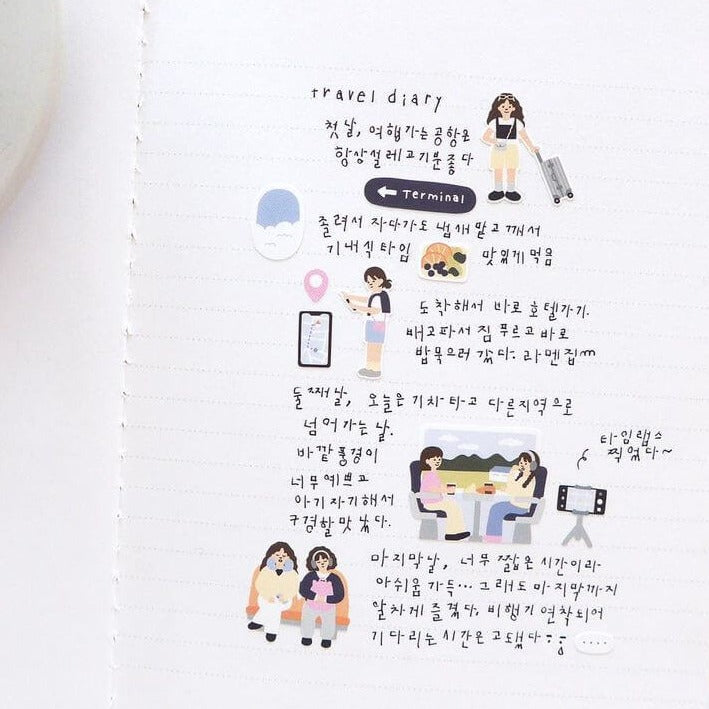 travel diary
첫날, 여행가는 공항은
항상 설레고 기분좋다
← Terminal
졸려서 자다가도 냄새 맡고 깨서
기내식 타임 맛있게 먹음
도착해서 바로 호텔가기.
배고파서 짐 푸르고 바로
밥 먹으러 갔다. 라멘집
둘째날, 오늘은 기차타고 다른지역으로
넘어가는 날.
바깥 풍경이
너무 예쁘고
아기자기해서
구경할 맛 났다.
타임랩스
찍었다~
마지막날, 너무 짧은 시간이라
아쉬움 가득... 그래도 마지막까지
알차게 즐겼다. 비행기 연착되어
기다리는 시간은 고됐다 ....